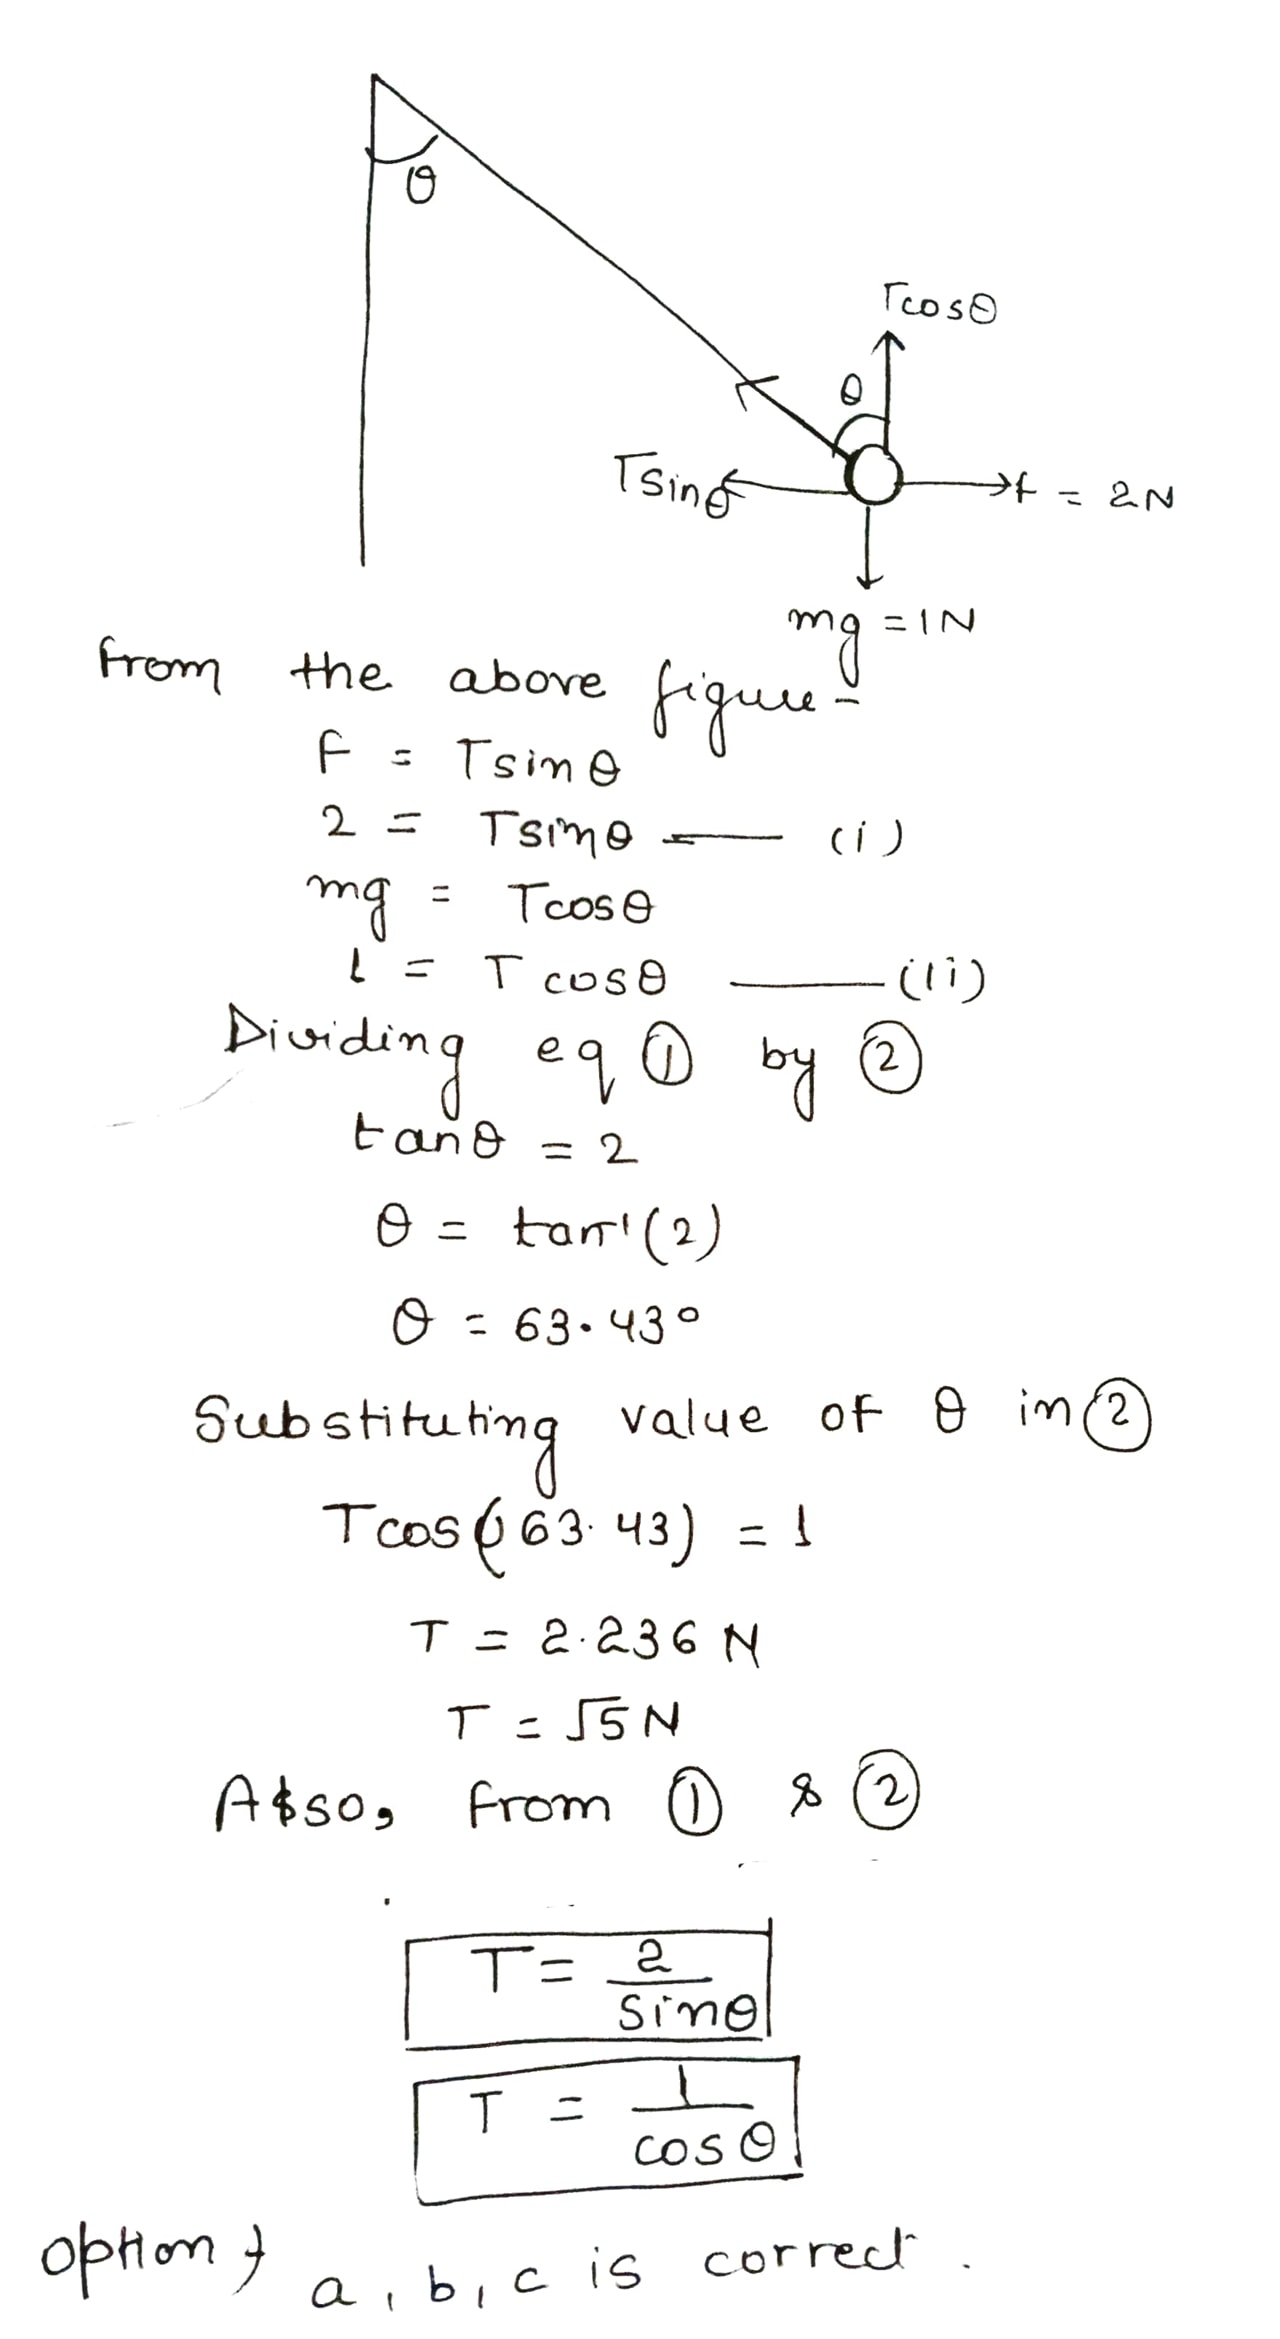 θ
Tcosθ
θ
Tsinθ
f = 2N
mg = 1N
From the above figure -
F = Tsinθ
2 = Tsinθ — (i)
mg = Tcosθ
1 = Tcosθ — (ii)
Dividing eq ① by ②
tanθ = 2
θ = tan⁻¹(2)
θ = 63.43°
Substituting value of θ in ②
Tcos(63.43) = 1
T = 2.236 N
T = √5 N
Also, from ① & ②
T = 2/sinθ
T = 1/cosθ
option a, b, c is correct.